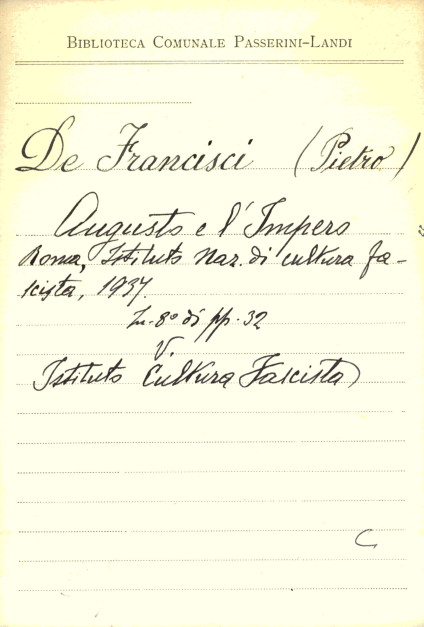 BIBLIOTECA COMUNALE PASSERINI-LANDI
De Francisci (Pietro)
Augusto e l'Impero
Roma, Istituto Naz. di cultura fa-
scista, 1937.
In-8° di pp. 32
V.
Istituto Cultura Fascista
C